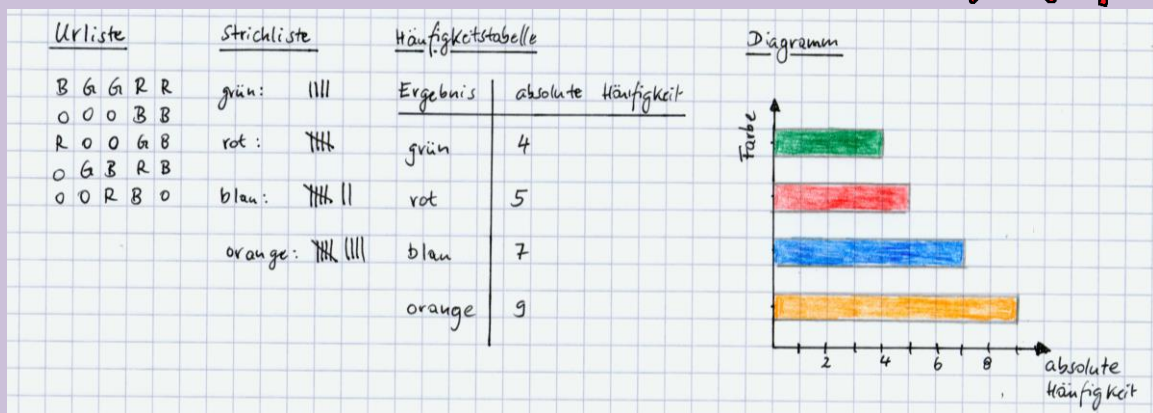 Urliste
B G G R R
O O O B B
R O O G B
O G B R B
O O R B O
Strichliste
grün: ||||
rot: 卌
blau: 卌 ||
orange: 卌 ||||
Häufigkeitstabelle
Ergebnis absolute Häufigkeit
grün 4
rot 5
blau 7
orange 9
Diagramm
Farbe
2 4 6 8
absolute
Häufigkeit